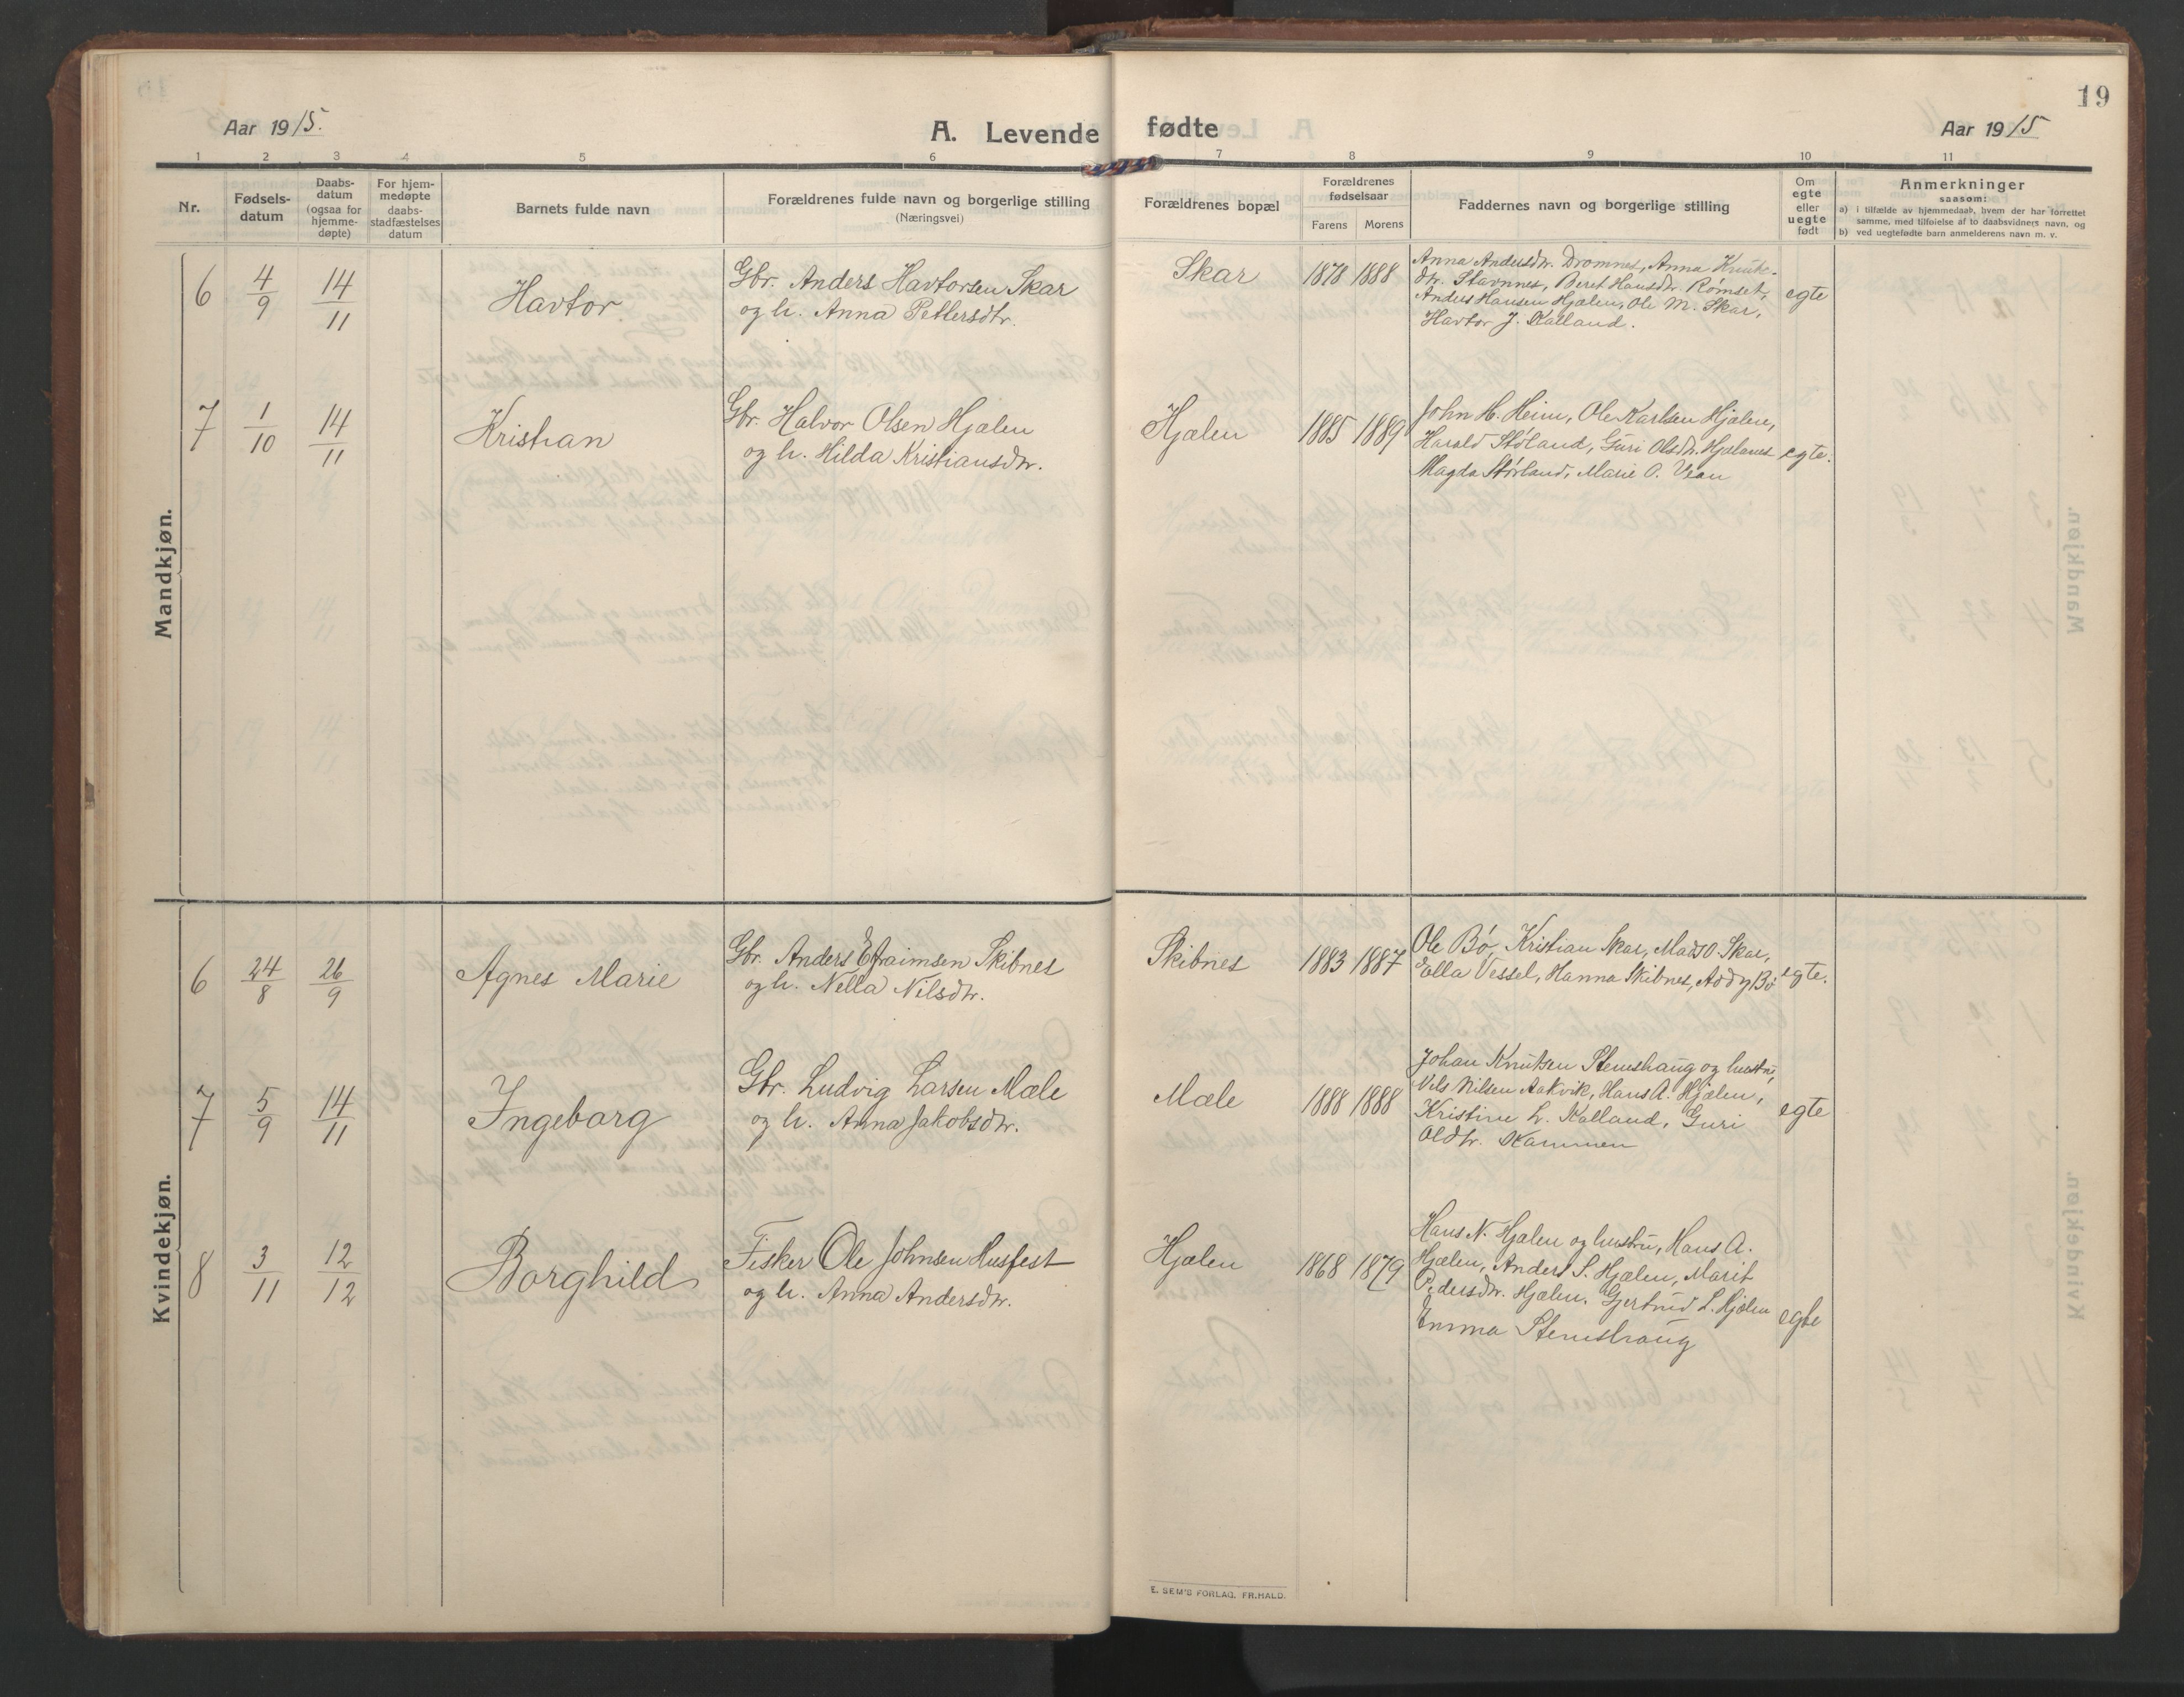 19
Aar 1915.
A. Levende fødte
Aar 1915
1 2 3 4 5 6 7 8 9 10 11
Nr.
Fødsels-
datum
Daabs-
datum
(ogsaa for
hjemme-
døpte)
For hjem-
medøpte
daabs-
stadfæstelses
datum
Barnets fulde navn
Forældrenes fulde navn og borgerlige stilling
(Næringsvei)
Forældrenes bopæl
Forældrenes
fødselsaar
Farens Morens
Faddernes navn og borgerlige stilling
Om
egte
eller
uegte
født
Anmerkninger
saasom:
a) i tilfælde av hjemmedaab, hvem der har forrettet
samme, med tilføielse af to daabsvidners navn, og
b) ved uegtefødte barn anmelderens navn m. v.
Mandkjøn.
6 4/9 14/11 Havtor.
Gbr. Anders Havtorsen Skar
og h. Anna Pettersdtr.
Skar 1878 1888
Anna Andersdtr. Dromnes, Anna Knuts-
dtr. Stavnnes, Beret Hansdtr. Rømset,
Anders Hansen Hjælen, Ole M. Skar,
Havtor J. Kalland.
egte
7 1/10 14/11 Kristian
Gbr. Halvor Olsen Hjælen
og h. Hilda Kristiansdtr.
Hjælen 1885 1889
John H. Heim, Ole Karlsen Hjælen,
Harald Støland, Guri Olsdtr. Hjælnes
Magda Størland, Marie O. Vean
egte.
Kvindekjøn.
6 24/8 26/9 Agnes Marie
Gbr. Anders Efraimsen Skibnes
og h. Nella Nilsdtr.
Skibnes 1883 1887
Ole Bø, Kristian Skar, Mads O. Skar,
Ella Vessel, Hanna Skibnes, Addy Bø
egte.
7 5/9 14/11 Ingeborg
Gbr. Ludvig Larsen Mæle
og h. Anna Jakobsdtr.
Mæle 1888 1888
Johan Knutsen Stemshaug og hustru,
Nils Nilsen Aakvik, Hans A. Hjælen,
Kristine L. Kalland, Guri
Olsdtr. Kammen
egte
8 3/11 12/12 Borghild
Fisker Ole Johnsen Husfest
og h. Anna Andersdtr.
Hjælen 1868 1879
Hans N. Hjælen og hustru, Hans A.
Hjælen, Anders S. Hjælen, Marit
Pedersdtr. Hjælen, Gjertrud L. Hjælen
Emma Stemshaug
egte
E. SEM'S FORLAG, FR.HALD.